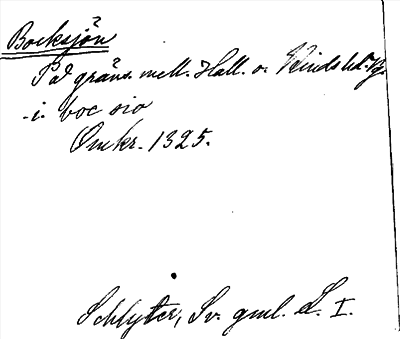 Bocksjön
På gräns. mell. Hall. o. Kinds hd. Vg.
i. boc sio
Omkr. 1325.
Schlyter, Sv. gml. L. I.